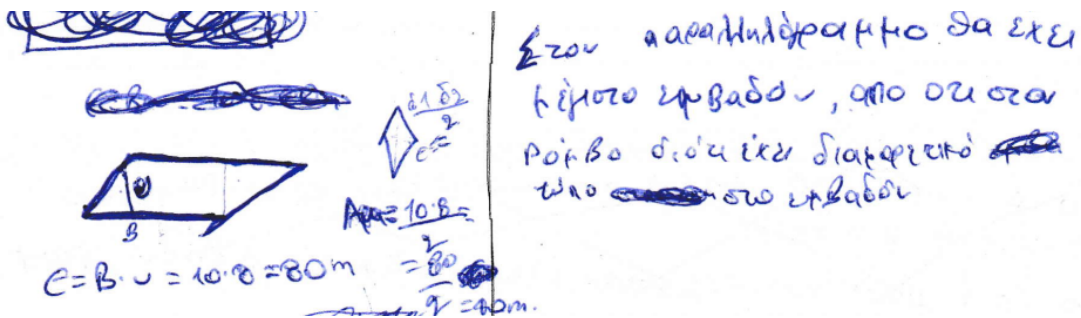 δ1 δ2
2
ε=
υ
B
Αρα= 10·8 =
2
= 80
2 = 40m.
E=B·υ=10·8=80m
Στον παραλληλόγραμμο θα έχει
μέγιστο εμβαδόν, απο οτι στον
Ρόμβο διότι έχει διαφορετικό
τύπο στο εμβαδόν